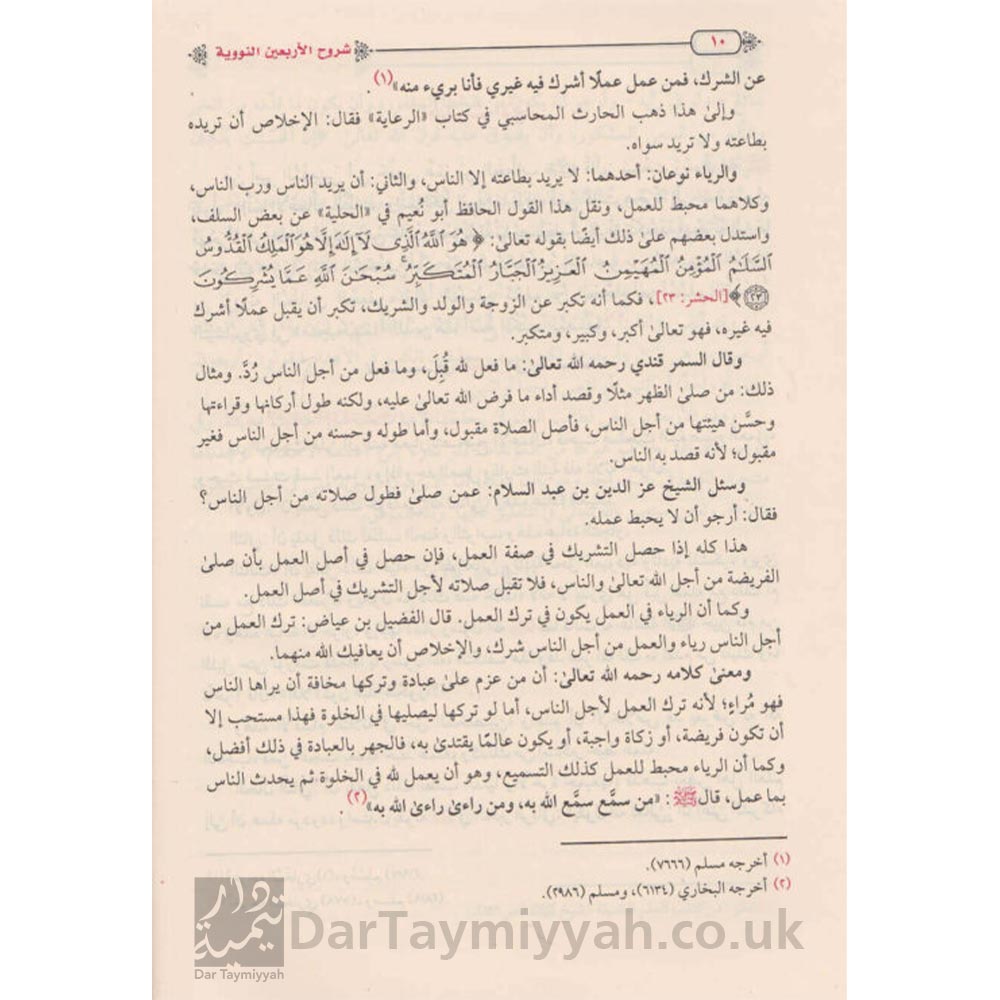 ١٠
شروح الأربعين النووية
عن الشرك، فمن عمل عملًا أشرك فيه غيري فأنا بريء منه»(١).
وإلىٰ هذا ذهب الحارث المحاسبي في كتاب «الرعاية» فقال: الإخلاص أن تريده
بطاعته ولا تريد سواه.
والرياء نوعان: أحدهما: لا يريد بطاعته إلا الناس، والثاني: أن يريد الناس ورب الناس،
وكلاهما محبط للعمل، ونقل هذا القول الحافظ أبو نُعيم في «الحلية» عن بعض السلف،
واستدل بعضهم علىٰ ذلك أيضًا بقوله تعالىٰ: ﴿هُوَ ٱللَّهُ ٱلَّذِى لَآ إِلَٰهَ إِلَّا هُوَ ٱلْمَلِكُ ٱلْقُدُّوسُ
ٱلسَّلَٰمُ ٱلْمُؤْمِنُ ٱلْمُهَيْمِنُ ٱلْعَزِيزُ ٱلْجَبَّارُ ٱلْمُتَكَبِّرُ ۚ سُبْحَٰنَ ٱللَّهِ عَمَّا يُشْرِكُونَ
٢٣﴾ [الحشر: ٢٣]، فكما أنه تكبر عن الزوجة والولد والشريك، تكبر أن يقبل عملًا أشرك
فيه غيره، فهو تعالىٰ أكبر، وكبير، ومتكبر.
وقال السمر قندي رحمه الله تعالىٰ: ما فعل لله قُبِلَ، وما فعل من أجل الناس رُدَّ. ومثال
ذلك: من صلىٰ الظهر مثلًا وقصد أداء ما فرض الله تعالىٰ عليه، ولكنه طول أركانها وقراءتها
وحسَّن هيئتها من أجل الناس، فأصل الصلاة مقبول، وأما طوله وحسنه من أجل الناس فغير
مقبول؛ لأنه قصد به الناس.
وسئل الشيخ عز الدين بن عبد السلام: عمن صلىٰ فطول صلاته من أجل الناس؟
فقال: أرجو أن لا يحبط عمله.
هذا كله إذا حصل التشريك في صفة العمل، فإن حصل في أصل العمل بأن صلىٰ
الفريضة من أجل الله تعالىٰ والناس، فلا تقبل صلاته لأجل التشريك في أصل العمل.
وكما أن الرياء في العمل يكون في ترك العمل. قال الفضيل بن عياض: ترك العمل من
أجل الناس رياء والعمل من أجل الناس شرك، والإخلاص أن يعافيك الله منهما.
ومعنىٰ كلامه رحمه الله تعالىٰ: أن من عزم علىٰ عبادة وتركها مخافة أن يراها الناس
فهو مُراءٍ؛ لأنه ترك العمل لأجل الناس، أما لو تركها ليصليها في الخلوة فهذا مستحب إلا
أن تكون فريضة، أو زكاة واجبة، أو يكون عالمًا يقتدىٰ به، فالجهر بالعبادة في ذلك أفضل،
وكما أن الرياء محبط للعمل كذلك التسميع، وهو أن يعمل لله في الخلوة ثم يحدث الناس
بما عمل، قال ﷺ: «من سمَّع سمَّع الله به، ومن راءىٰ راءىٰ الله به»(٢).
(١) أخرجه مسلم (٧٦٦٦).
(٢) أخرجه البخاري (٦١٣٤)، ومسلم (٢٩٨٦).
دار تيمية
Dar Taymiyyah
DarTaymiyyah.co.uk